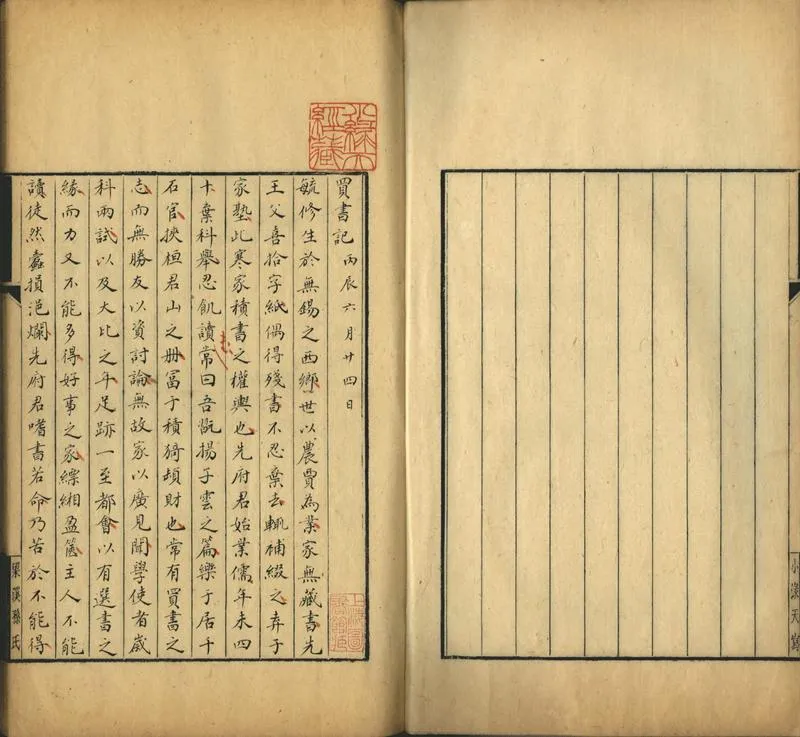 小淥天
買書記 丙辰六月廿四日
毓修生於無錫之西鄉世以農賈為業家無藏書先
王父喜拾字紙偶得殘書不忍棄去輒補綴之弆于
家塾此寒家積書之權輿也先府君始業儒年未四
十棄科舉忍飢讀常曰吾翫揚子雲之篇樂于居千
石官挾桓君山之册富于積猗頓財也常有買書之
志而無勝友以資討論無故家以廣見聞學使者歲
科兩試以及大比之年足跡一至都會以有選書之
緣而力又不能多得好事之家縹緗盈篋主人不能
讀徒然蠹損浥爛先府君嗜書若命乃苦於不能得
梁溪孫氏